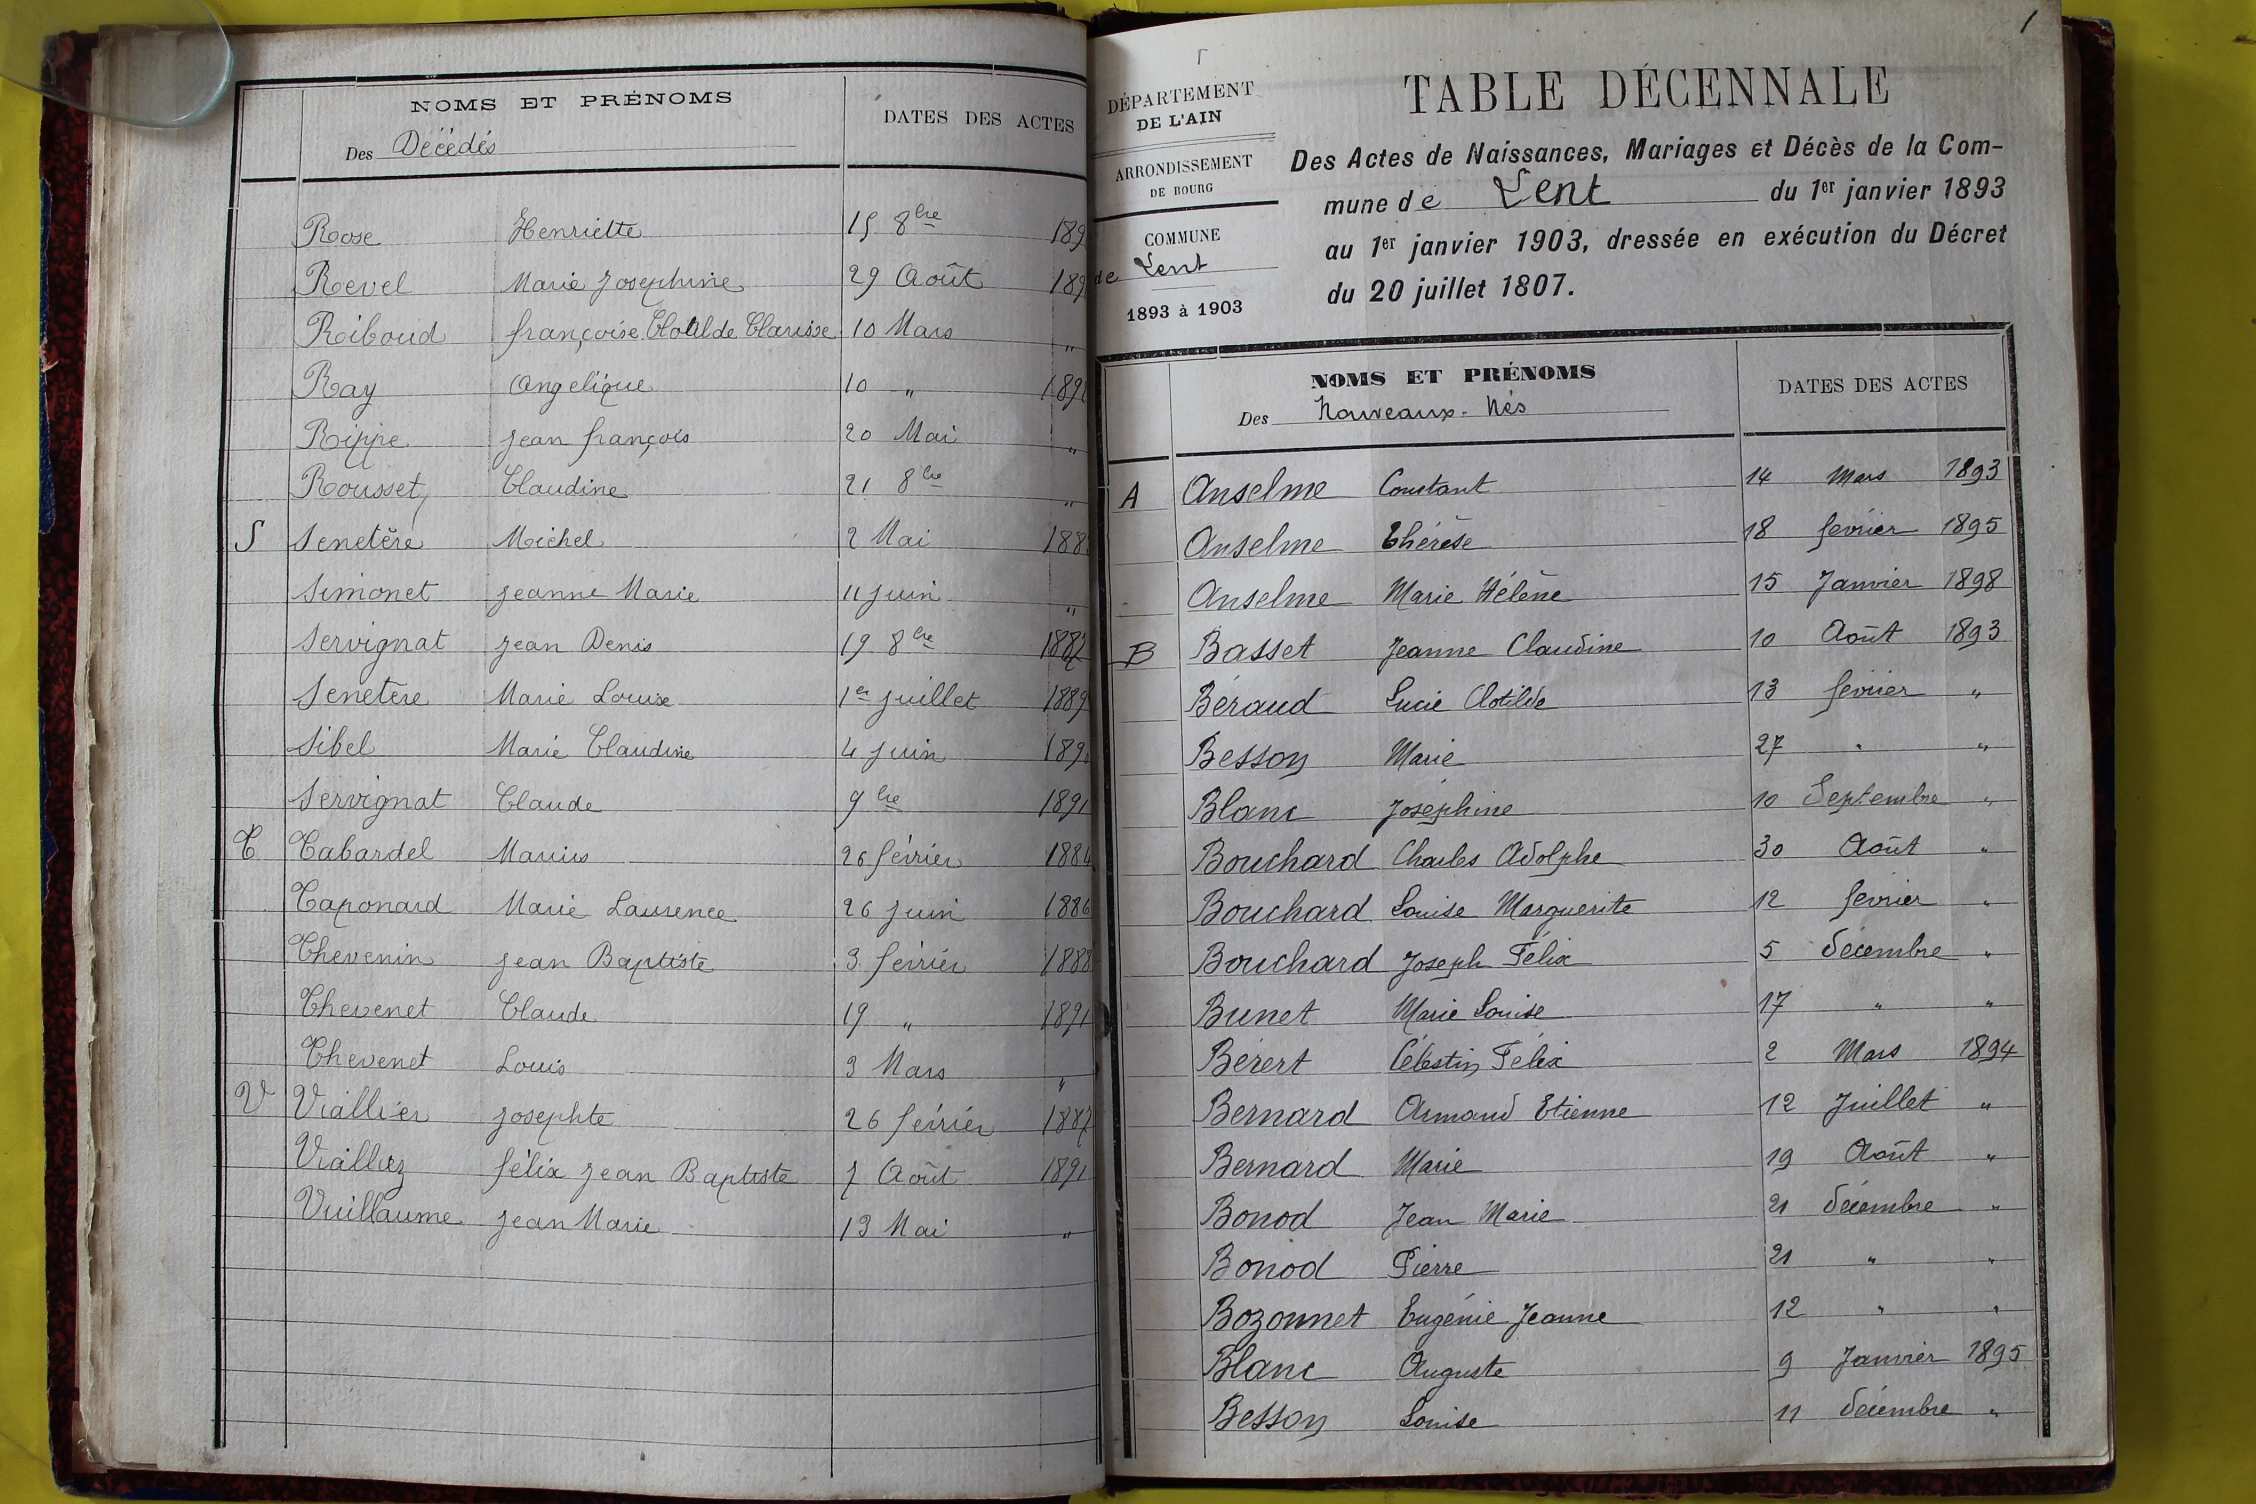 NOMS ET PRÉNOMS
Des Décédés
DATES DES ACTES
Rose Henriette 15 8bre 189
Revel Marie Josephine 29 Août 189
Riboud françoise Clotilde Clarisse 10 Mars "
Ray Angelique 10 " 189
Rippe Jean françois 20 Mai "
Rousset Claudine 21 8bre "
S Senetère Michel 2 Mai 188
Simonet Jeanne Marie 11 Juin "
Servignat Jean Denis 19 8bre 1887
Senetère Marie Louise 1er Juillet 1889
Sibel Marie Claudine 4 Juin 189
Servignat Claude 9bre 1891
T Tabardel Marius 26 février 1884
Taponard Marie Laurence 26 Juin 1886
Thevenin Jean Baptiste 3 février 1888
Thevenet Claude 19 " 1891
Thevenet Louis 3 Mars "
V Viallier Josephte 26 février 1887
Viallez félix Jean Baptiste 7 Août 1891
Vuillaume Jean Marie 13 Mai "
1
DÉPARTEMENT
DE L'AIN
ARRONDISSEMENT
DE BOURG
COMMUNE
de Lent
1893 à 1903
TABLE DÉCENNALE
Des Actes de Naissances, Mariages et Décès de la Com-
mune de Lent du 1er janvier 1893
au 1er janvier 1903, dressée en exécution du Décret
du 20 juillet 1807.
NOMS ET PRÉNOMS
Des Nouveaux-Nés
DATES DES ACTES
A Anselme Constant 14 Mars 1893
Anselme Thérèse 18 fevrier 1895
Anselme Marie Hélène 15 Janvier 1898
B Basset Jeanne Claudine 10 Août 1893
Béraud Lucie Clotilde 13 fevrier "
Besson Marie 27 " "
Blanc Joséphine 10 Septembre "
Bouchard Charles Adolphe 30 Août "
Bouchard Louise Marguerite 12 fevrier "
Bouchard Joseph Félix 5 décembre "
Bunet Marie Louise 17 " "
Bérert Célestin Félix 2 Mars 1894
Bernard Armand Etienne 12 Juillet "
Bernard Marie 19 Août "
Bonod Jean Marie 21 décembre "
Bonod Pierre 21 " "
Bozonnet Eugénie Jeanne 12 " "
Blanc Auguste 9 Janvier 1895
Besson Louise 11 décembre "